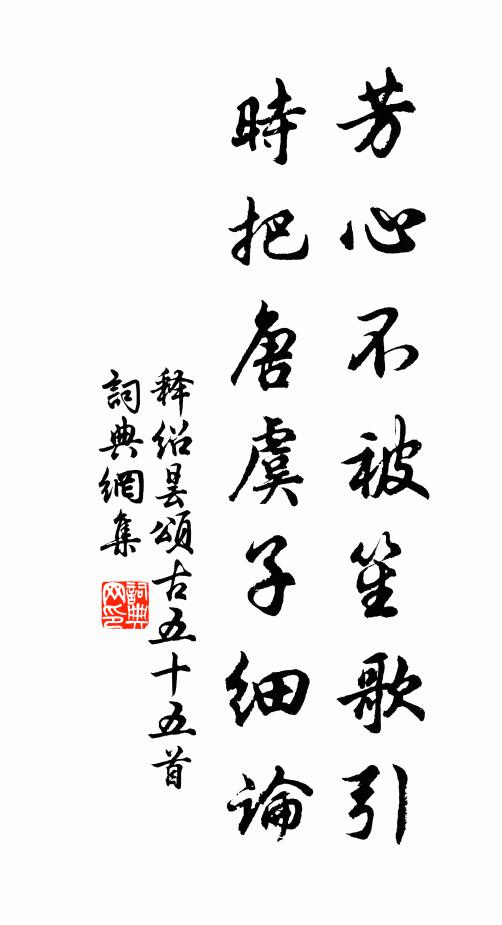 芳心不被笙歌引
時把唐虞子細論
释绍昙頌古五十五首
詞典網集
詞典网印